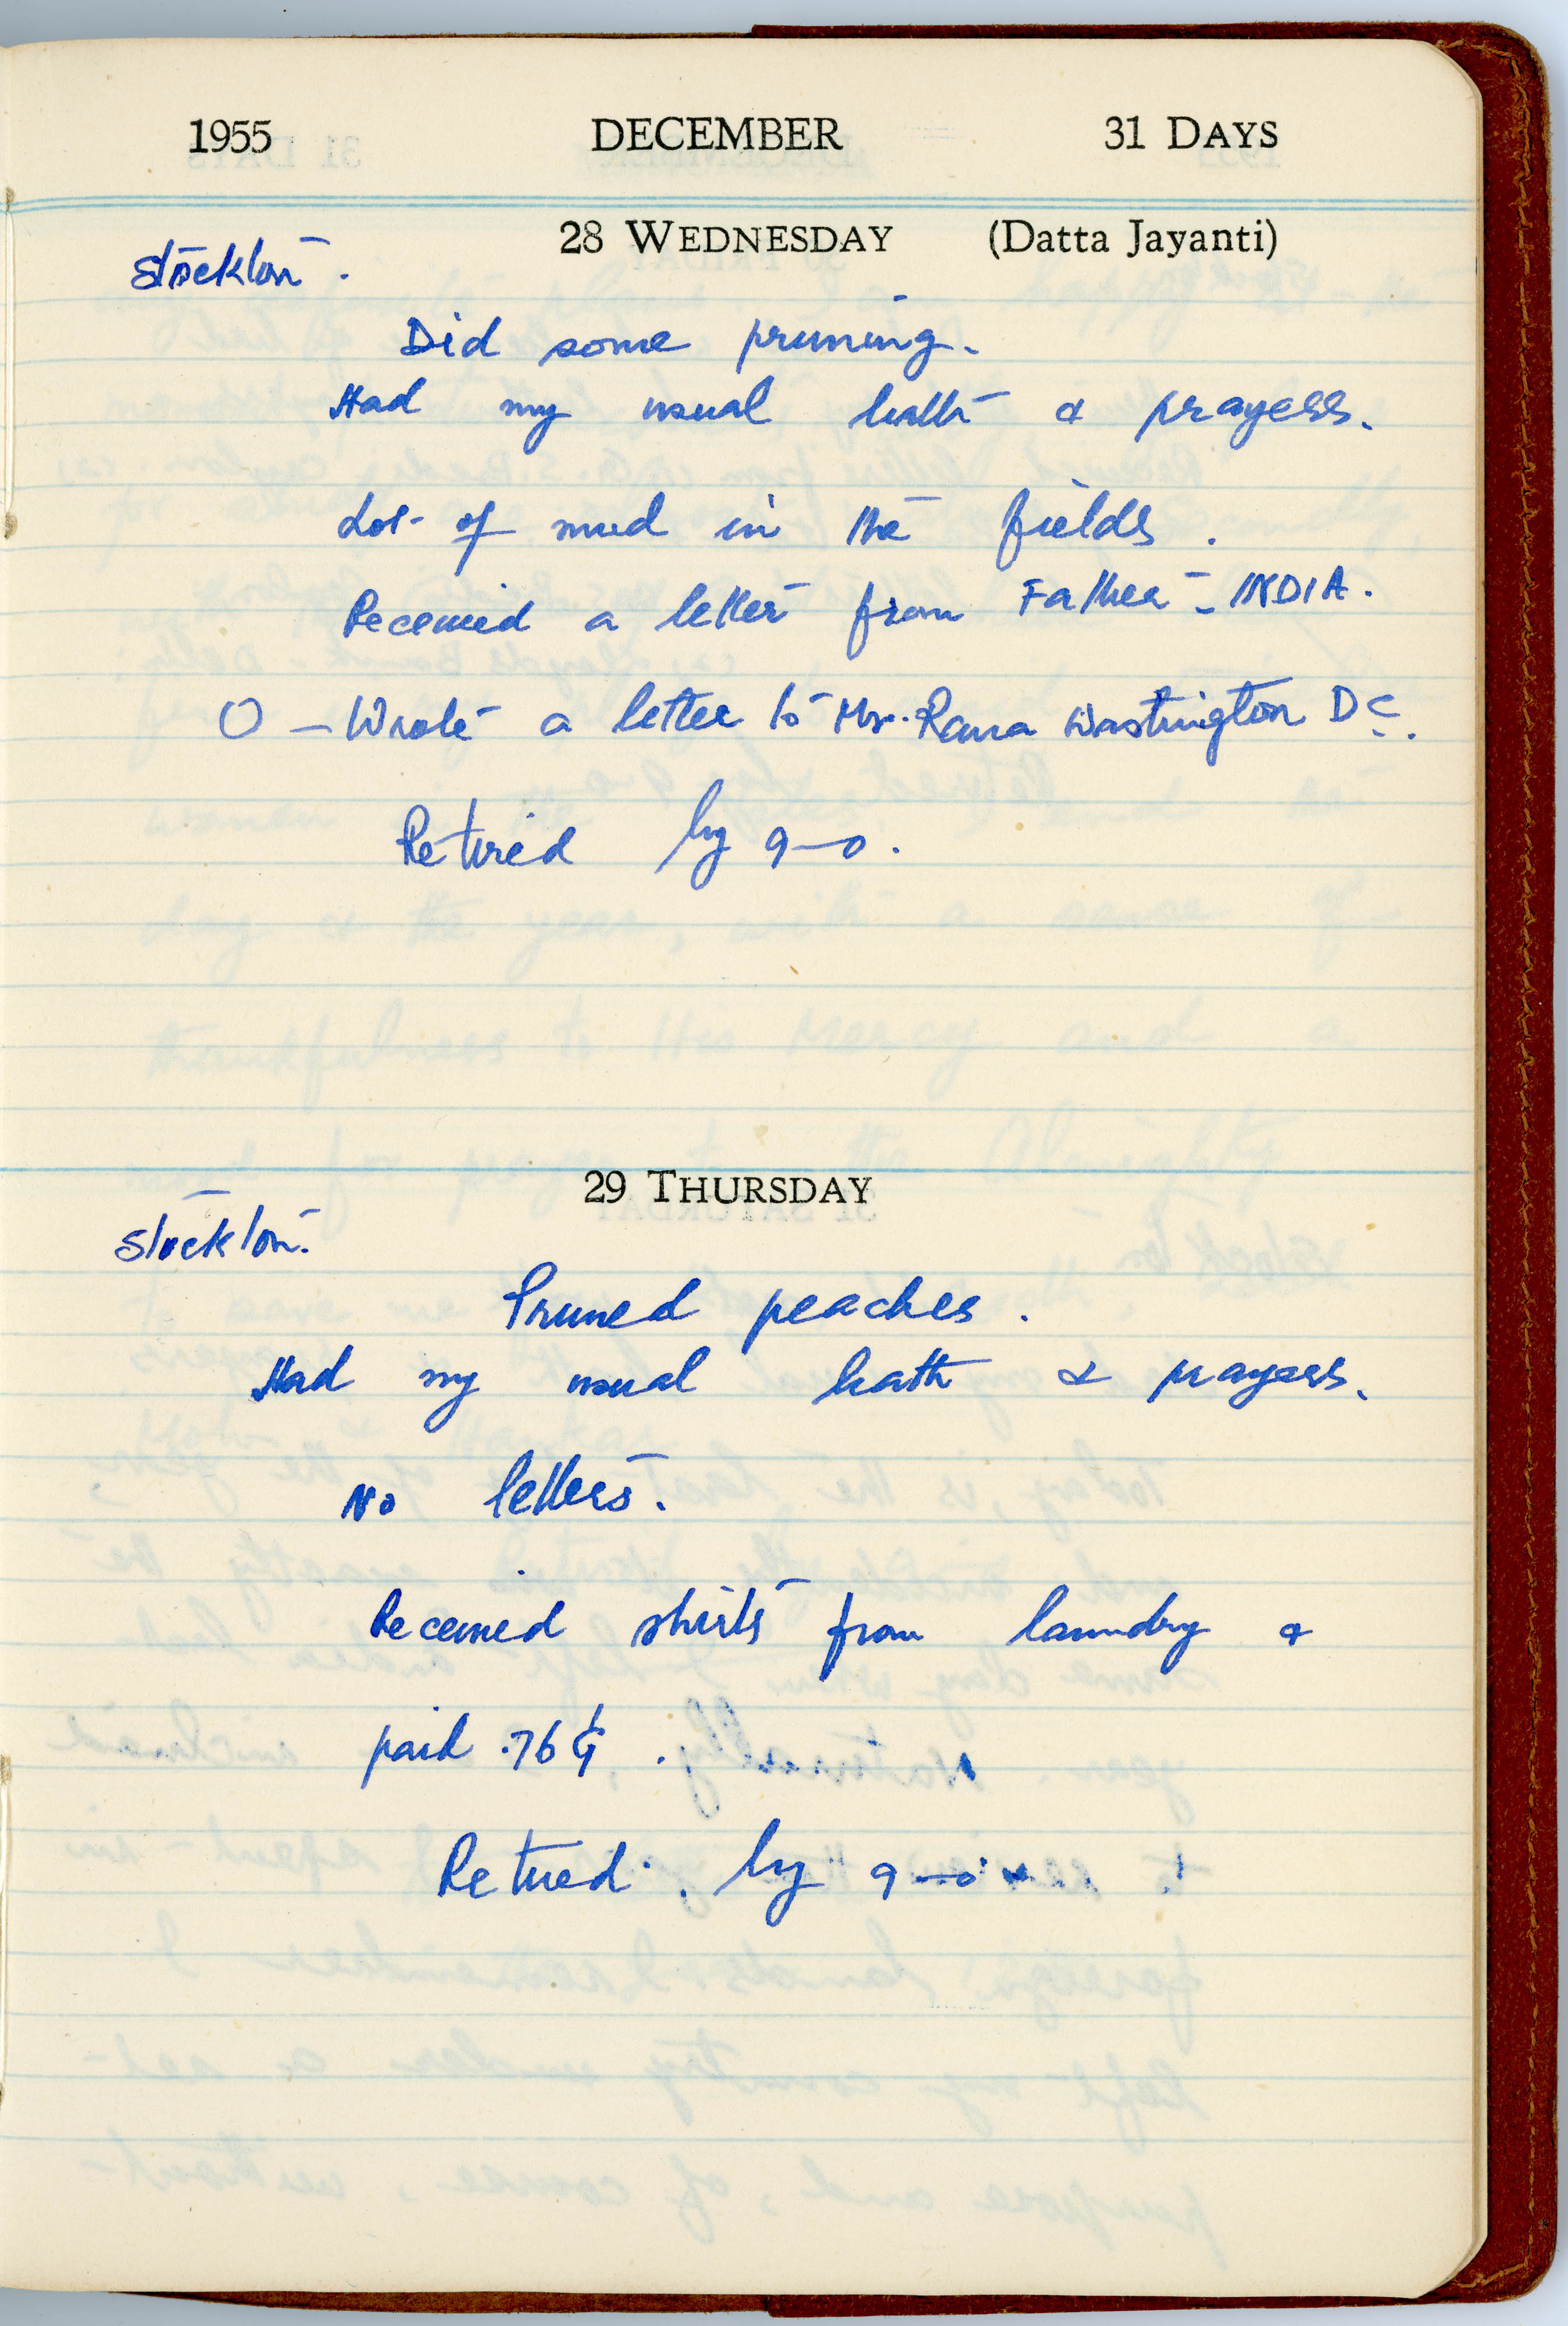 1955 DECEMBER 31 DAYS
28 WEDNESDAY (Datta Jayanti)
Stockton.
Did some pruning.
Had my usual bath & prayers.
Lot of mud in the fields.
Received a letter from Father - INDIA.
O - Wrote a letter to Mr. Rana Washington DC.
Retired by 9-0.
29 THURSDAY
Stockton.
Pruned peaches.
Had my usual bath & prayers.
No letters.
Received shirts from laundry &
paid .76 ¢.
Retired. by 9-0